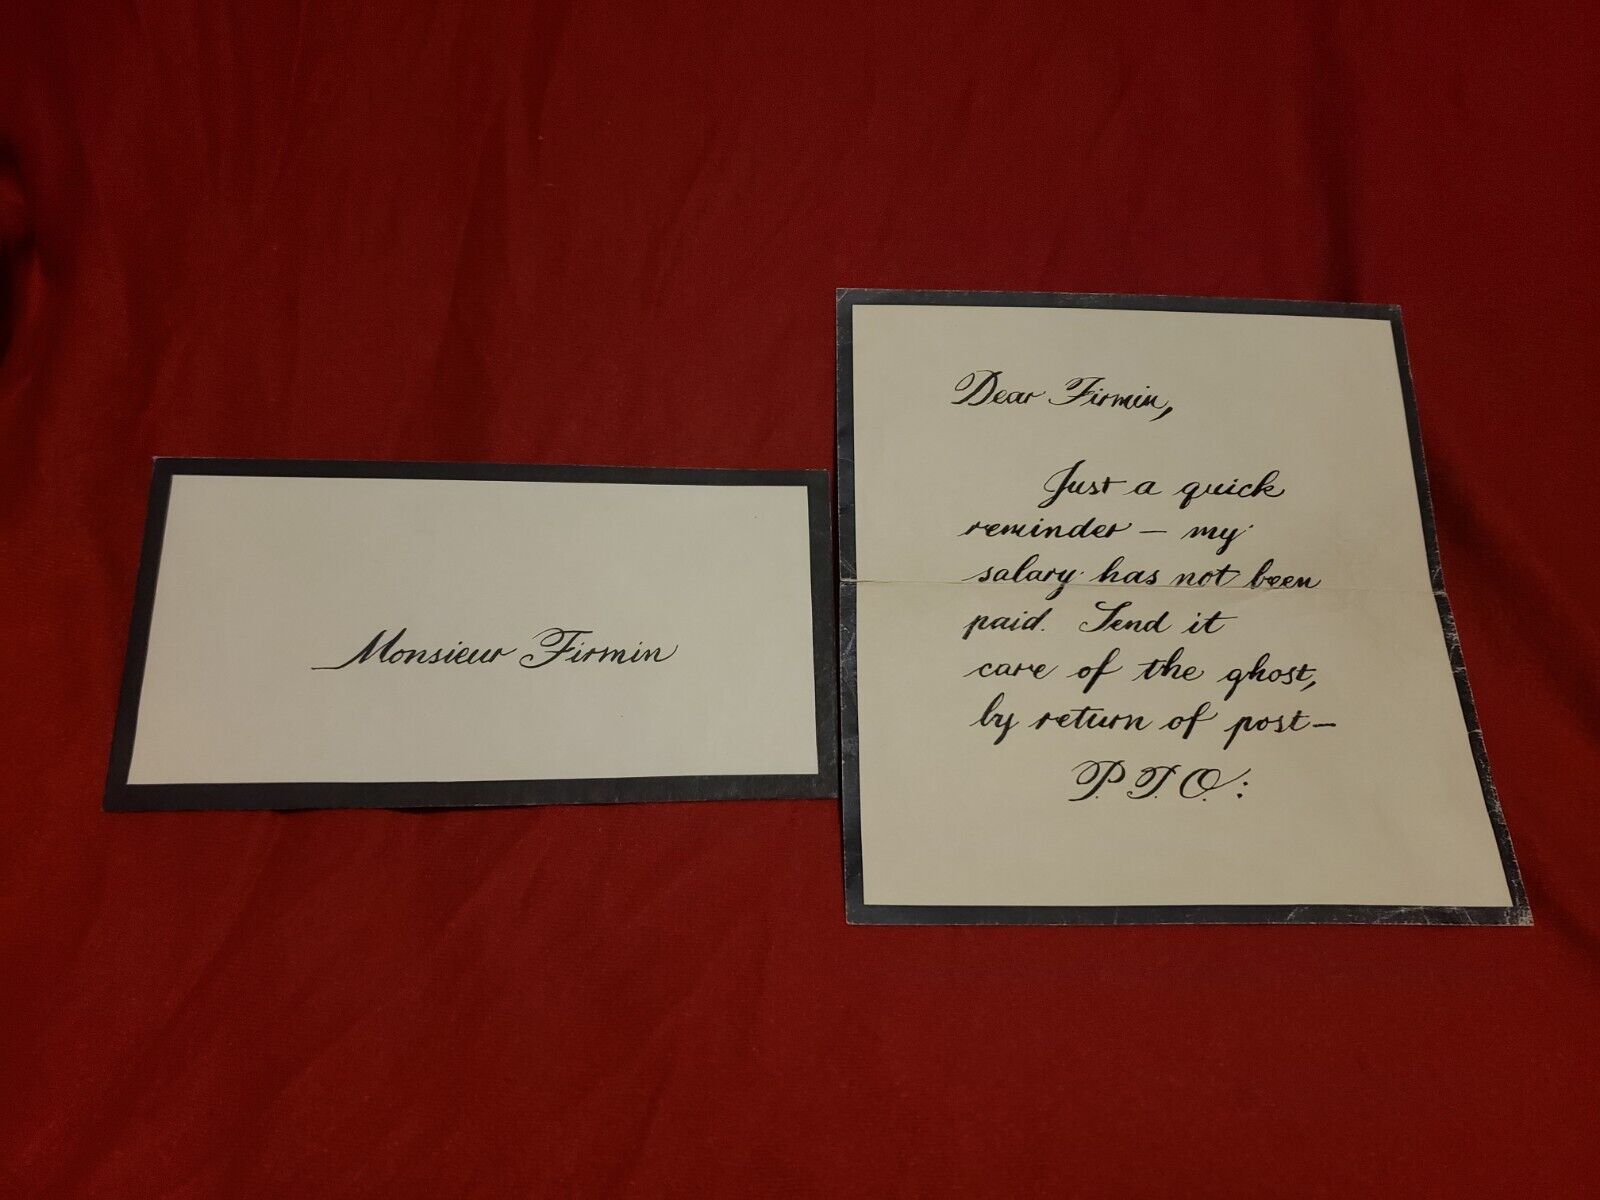 Monsieur Firmin
Dear Firmin,
Just a quick
reminder – my
salary has not been
paid. Send it
care of the ghost,
by return of post –
P.T.O.: